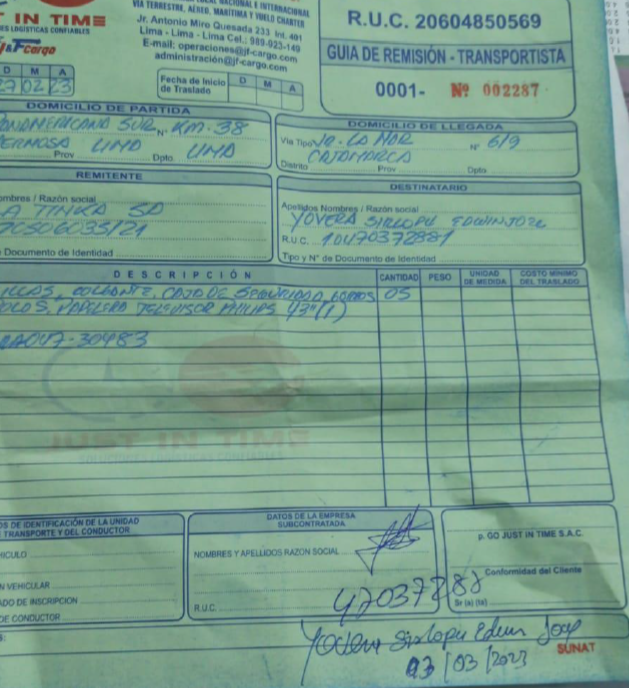 LOCAL NACIONAL E INTERNACIONAL
VIA TERRESTRE, AÉREO, MARÍTIMA Y VUELO CHARTER
T IN TIME
ES LOGÍSTICAS CONFIABLES
J&F Cargo
Jr. Antonio Miro Quesada 233 Int. 401
Lima - Lima - Lima Cel.: 989-923-149
E-mail: operaciones@jf-cargo.com
administración@jf-cargo.com
R.U.C. 20604850569
GUIA DE REMISIÓN - TRANSPORTISTA
0001- Nº 002287
D M A
27 02 23
Fecha de Inicio de Traslado
D M A
DOMICILIO DE PARTIDA
SUR Nº KM. 38
LIMA LIMA
Prov Dpto
DOMICILIO DE LLEGADA
Via Tipo JR. LA MAR Nº 619
CAJAMARCA
Distrito Prov Dpto
REMITENTE
ombres / Razón social
A TINKA SA
Documento de Identidad
DESTINATARIO
Apellidos Nombres / Razón social
YOVERA SIRLOPU EDWIN JOSE
R.U.C. 10470372881
Tipo y N° de Documento de Identidad
DESCRIPCIÓN CANTIDAD PESO UNIDAD DE MEDIDA COSTO MÍNIMO DEL TRASLADO
CAJA DE SEGURIDAD 05
PAPELERA TELEVISOR PHILIPS 43" (1)
-30483
OS DE IDENTIFICACIÓN DE LA UNIDAD
TRANSPORTE Y DEL CONDUCTOR
HICULO
N VEHICULAR
ADO DE INSCRIPCIÓN
DE CONDUCTOR
DATOS DE LA EMPRESA SUBCONTRATADA
NOMBRES Y APELLIDOS RAZON SOCIAL
R.U.C.
p. GO JUST IN TIME S.A.C.
Conformidad del Cliente
Sr (a) (ta)
47037288
Yovera Sirlopu Edwin Jose
03/03/2023
SUNAT